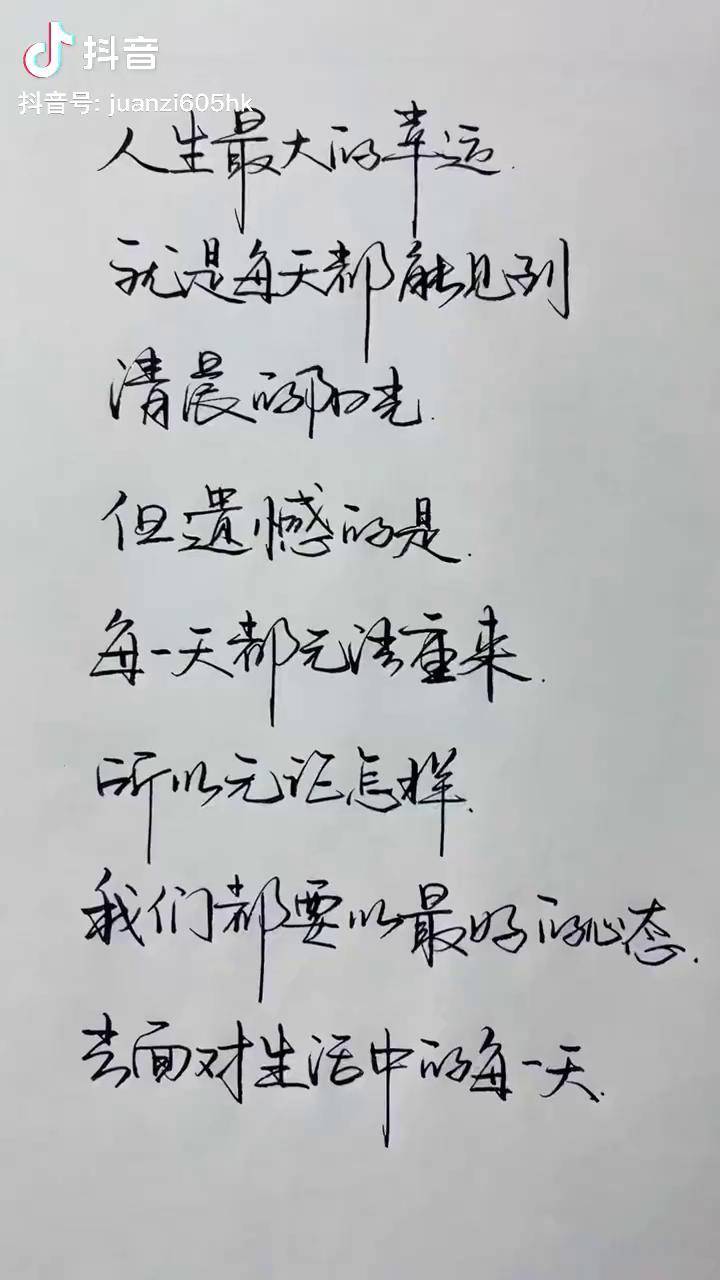 抖音
抖音号: juanzi605hk
人生最大的幸运.
就是每天都能见到
清晨的阳光.
但遗憾的是.
每一天都无法重来.
所以无论怎样.
我们都要以最好的心态.
去面对生活中的每一天.